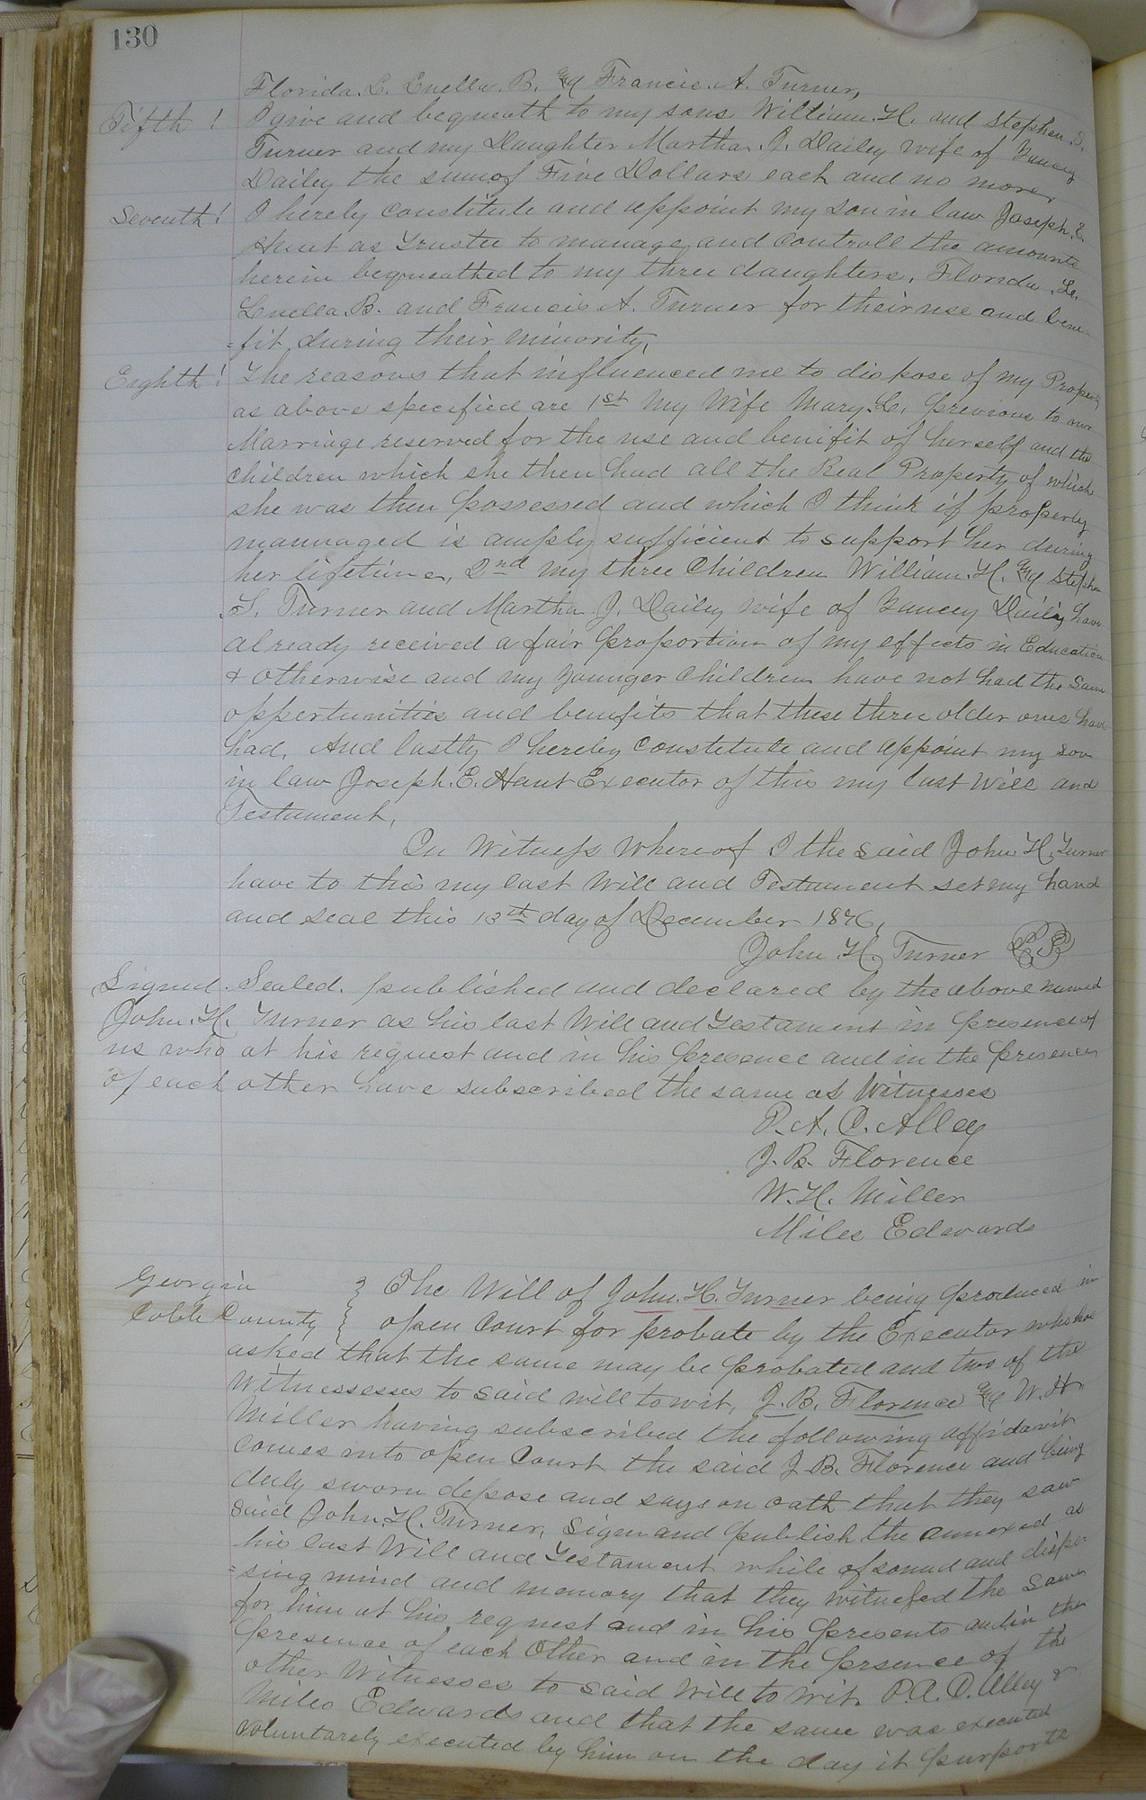 130
Florida. L. Luella. B. and Francis. A. Turner,
Fifth ! I give and bequeath to my sons William. H. and Stephen. S.
Turner and my Daughter Martha. J. Dailey wife of Yancey
Dailey the sum of Five Dollars each and no more,
Seventh ! I hereby constitute and appoint my son in law Joseph. E.
Hunt as Trustee to manage and Controll the amounts
herein bequeathed to my three daughters, Florida. L.
Luella. B. and Francis A. Turner for their use and bene
=fit during their minority,
Eighth ! The reasons that influenced me to dispose of my Property
as above specified are 1st My Wife Mary. L. previous to our
Marriage reserved for the use and benifit of herself and the
Children which she then had all the Real Property of which
she was then possessed and which I think if properly
mannaged is amply sufficient to support her during
her lifetime, 2nd My three Children William. H. and Stephen
S. Turner and Martha J. Dailey wife of Yancey Dailey have
already received a fair proportion of my effects in Education
& otherwise and my younger Children have not had the same
oppertunities and benefits that these three older ones have
had, And lastly I hereby Constitute and appoint my son
in law Joseph. E. Hunt Executor of this my last Will and
Testament,
In Witness whereof I the said John H. Turner
have to this my last Will and Testament set my hand
and seal this 13th day of December 1876,
John H. Turner L.S.
Signed. Sealed. published and declared by the above named
John. H. Turner as his last Will and Testament in presence of
us who at his request and in his presence and in the presence
of each other have subscribed the same as Witnesses
P. A. O. Alley
J. B. Florence
W. H. Miller
Miles Edwards
Georgia } The Will of John. H. Turner being produced in
Cobb County } open Court for probate by the Executor who has
asked that the same may be probated and two of the
Witnessesses to said will towit, J. B. Florence and W. H.
Miller having subscribed the following affidavit
Comes into open Court the said J. B. Florence and being
duly sworn depose and says on oath that they saw
said John. H. Turner, sign and publish the annexed as
his last Will and Testament while of sound and dispo-
=sing mind and memory that they witnessed the same
for him at his request and in his presents and in the
presence of each Other and in the prsence of the
other Witnesses to said Will to wit P. A. O. Alley &
Miles Edwards and that the same was executed
voluntarely executed by him on the day it purports